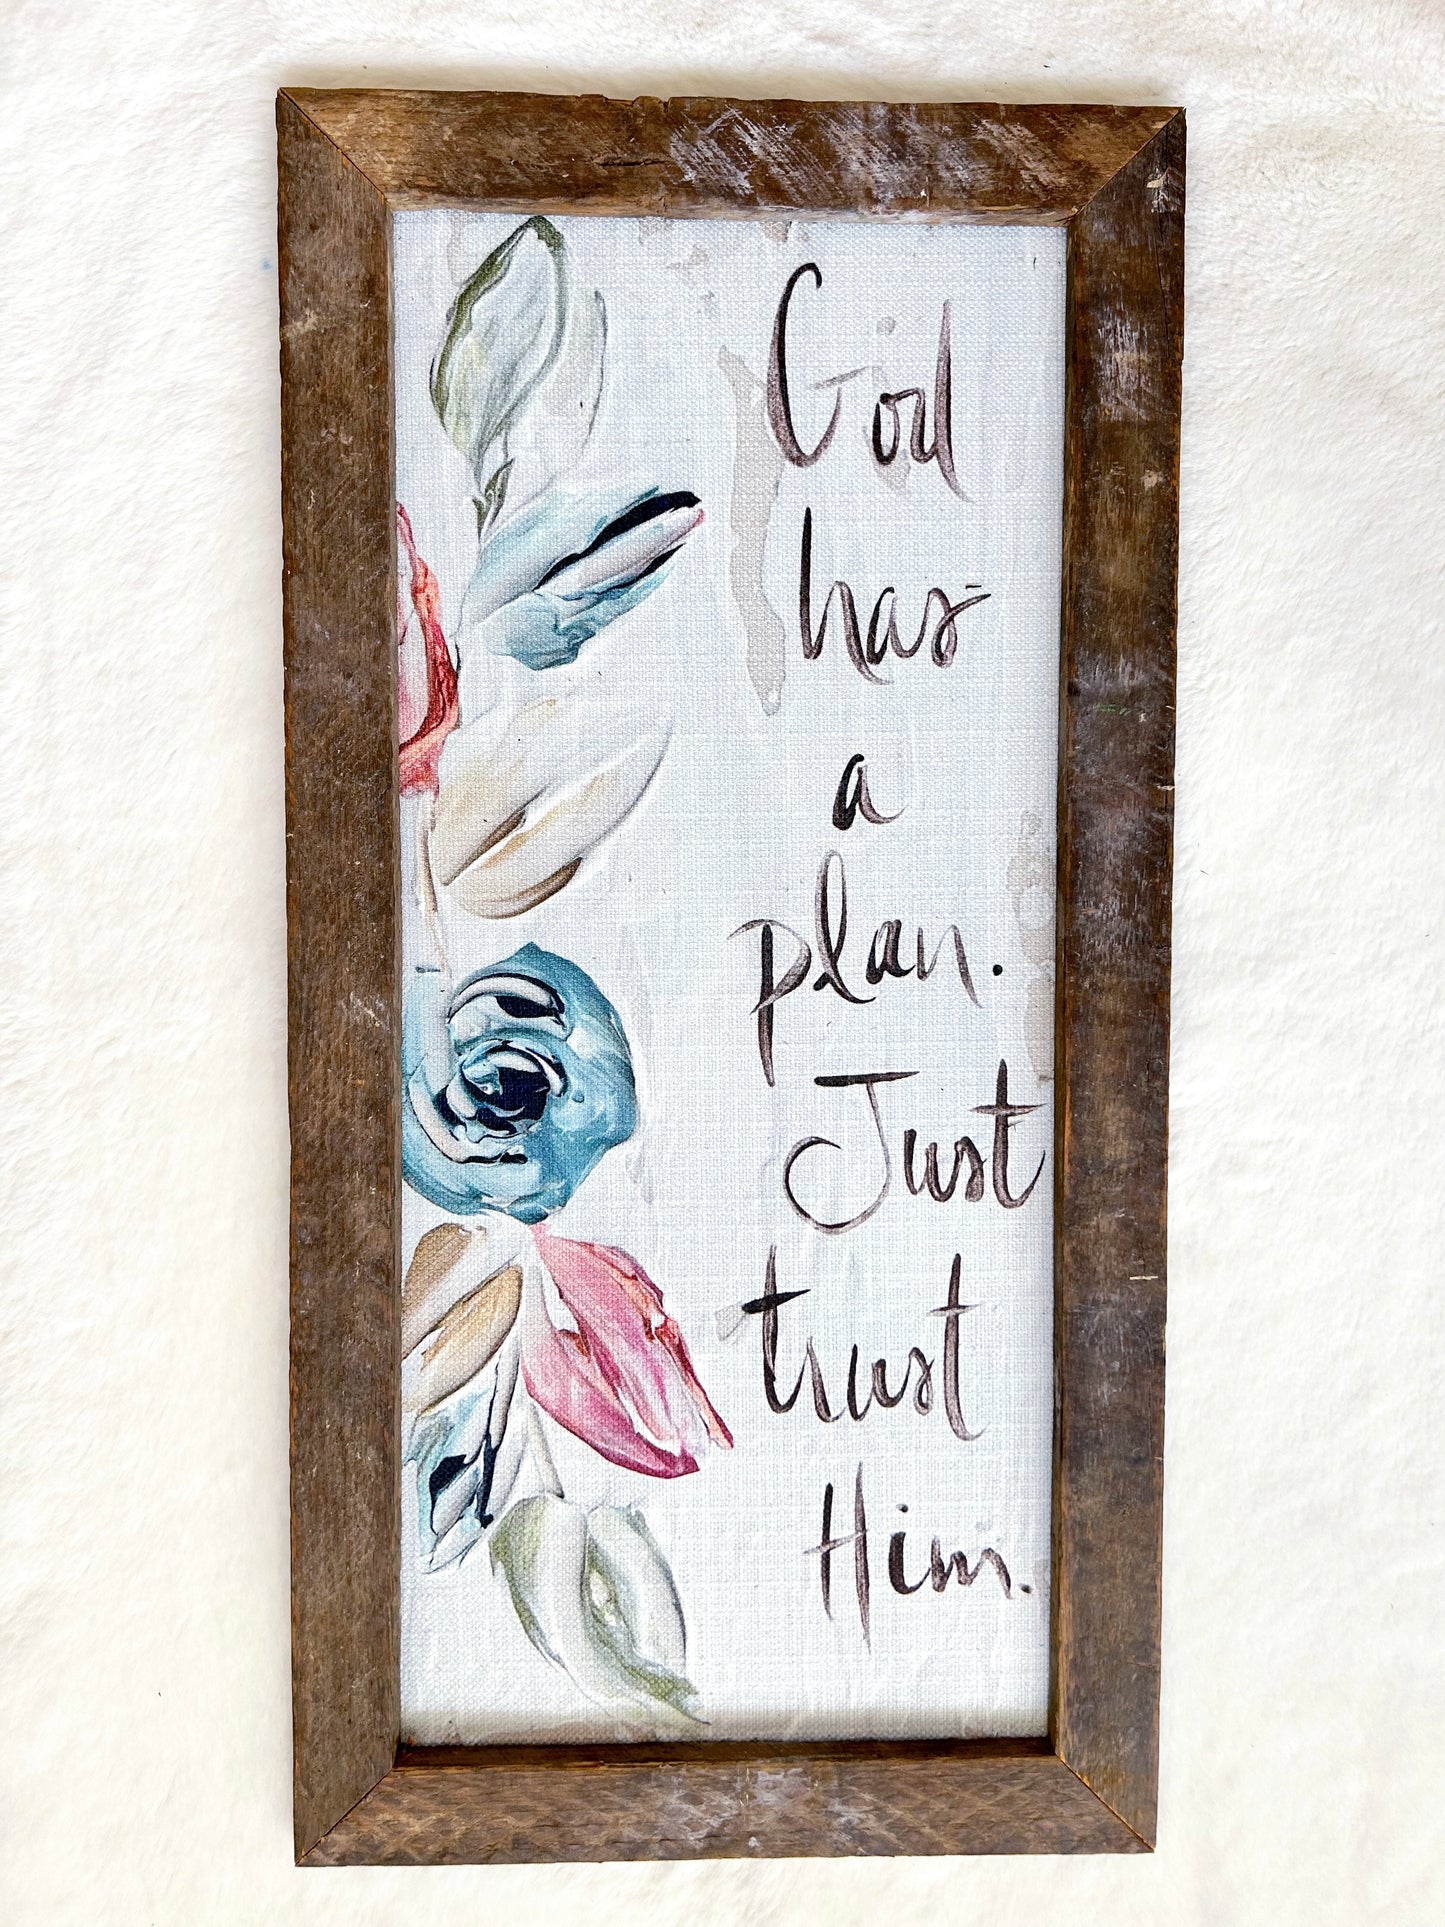 God
has
a
plan.
Just
trust
Him.